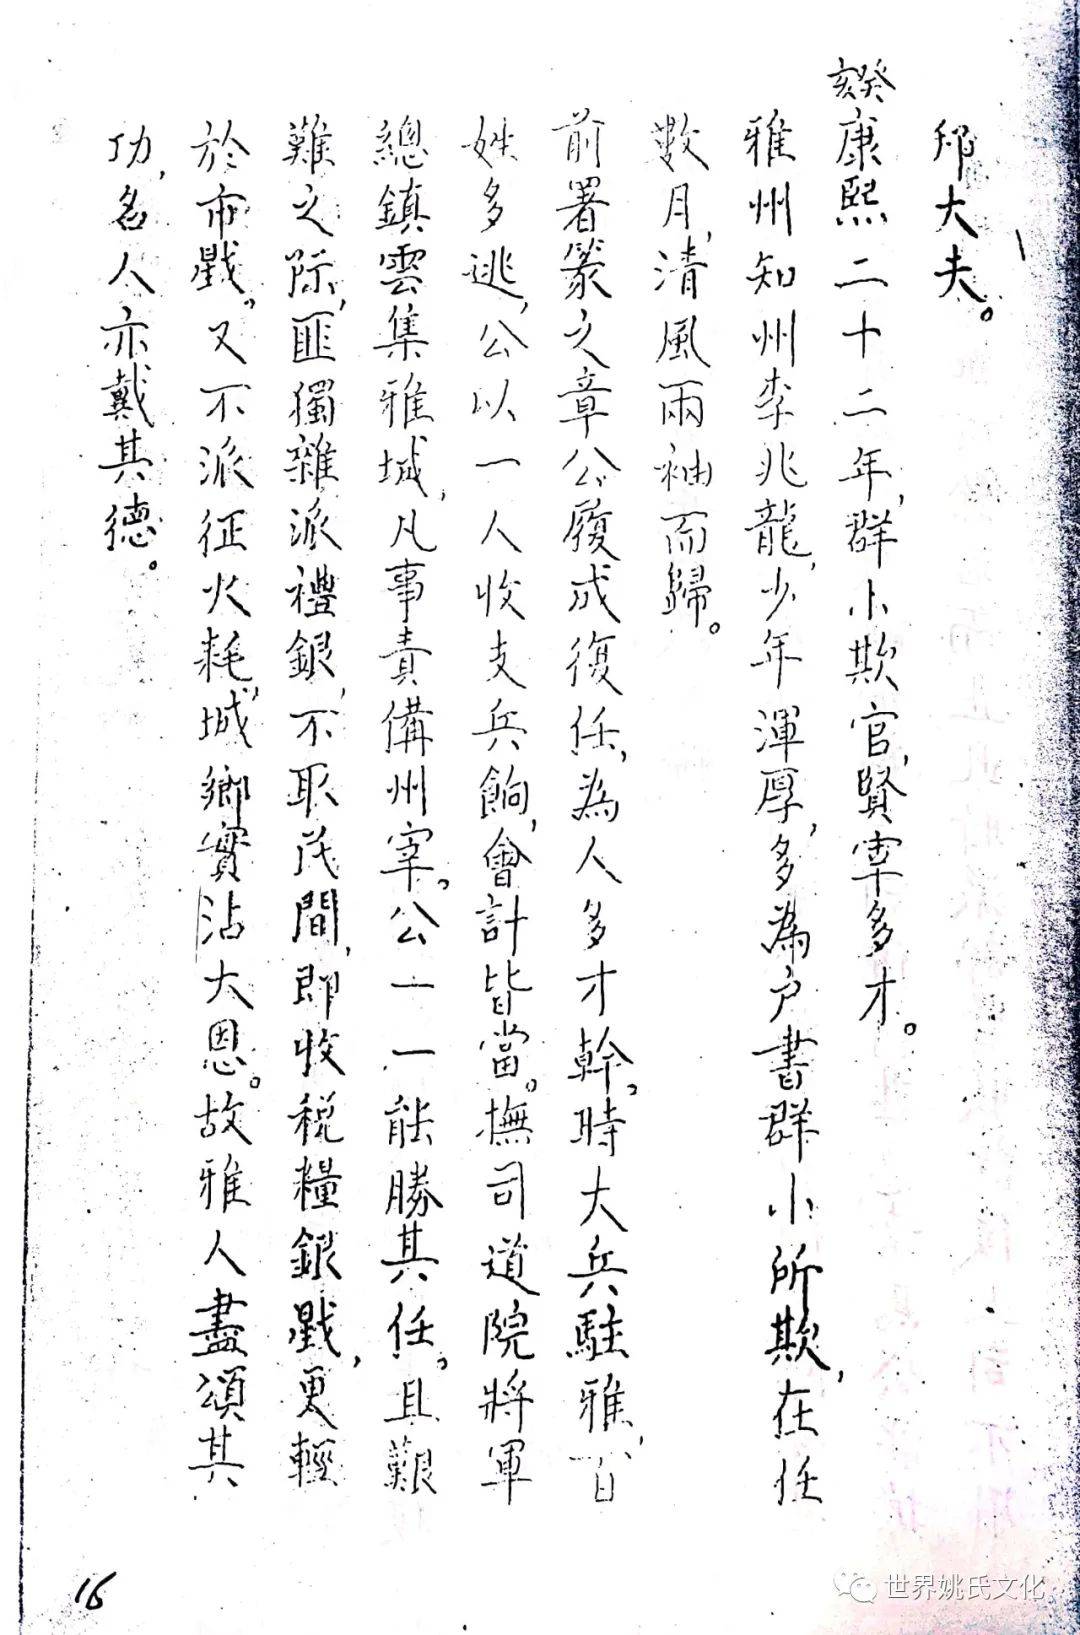 邛大夫。
癸亥康熙二十二年，群小欺官，賢宰多才。
雅州知州李兆龍，少年渾厚，多為户書群小所欺，在任
数月，清風兩袖而歸。
前署篆之章公履成復任，為人多才幹。時大兵駐雅，百
姓多逃，公以一人收支兵餉，會計皆當。撫司道院將軍
總鎮雲集雅城，凡事責備州宰。公一一能勝其任。且艱
難之際，匪獨雜派禮銀，不取民間，即收税糧銀戥，更輕
於市戥。又不派征火耗，城鄉實沾大恩。故雅人盡頌其
功，名人亦戴其德。
16
世界姚氏文化